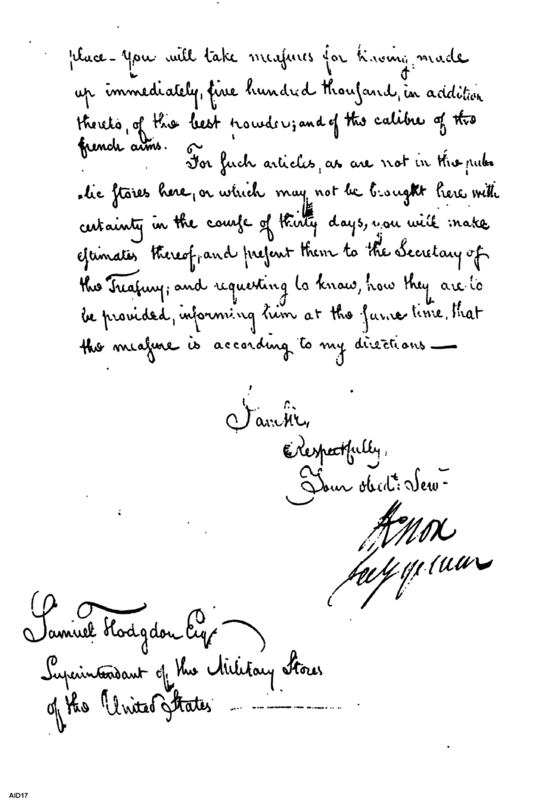 place – You will take measures for having made
up immediately, five hundred thousand, in addition
thereto, of the best powder; and of the calibre of the
french arms.
For such articles, as are not in the pub-
-lic stores here, or which may not be brought here with
certainty in the course of thirty days, you will make
estimates thereof, and present them to the Secretary of
the Treasury; and requesting to know, how they are to
be provided, informing him at the same time, that
the measure is according to my directions —
I am Sir,
Respectfully,
Your obedt: Serv-
HKnox
Secy of war
Samuel Hodgdon Esqr
Superintendant of the Military Stores
of the United States
AID17